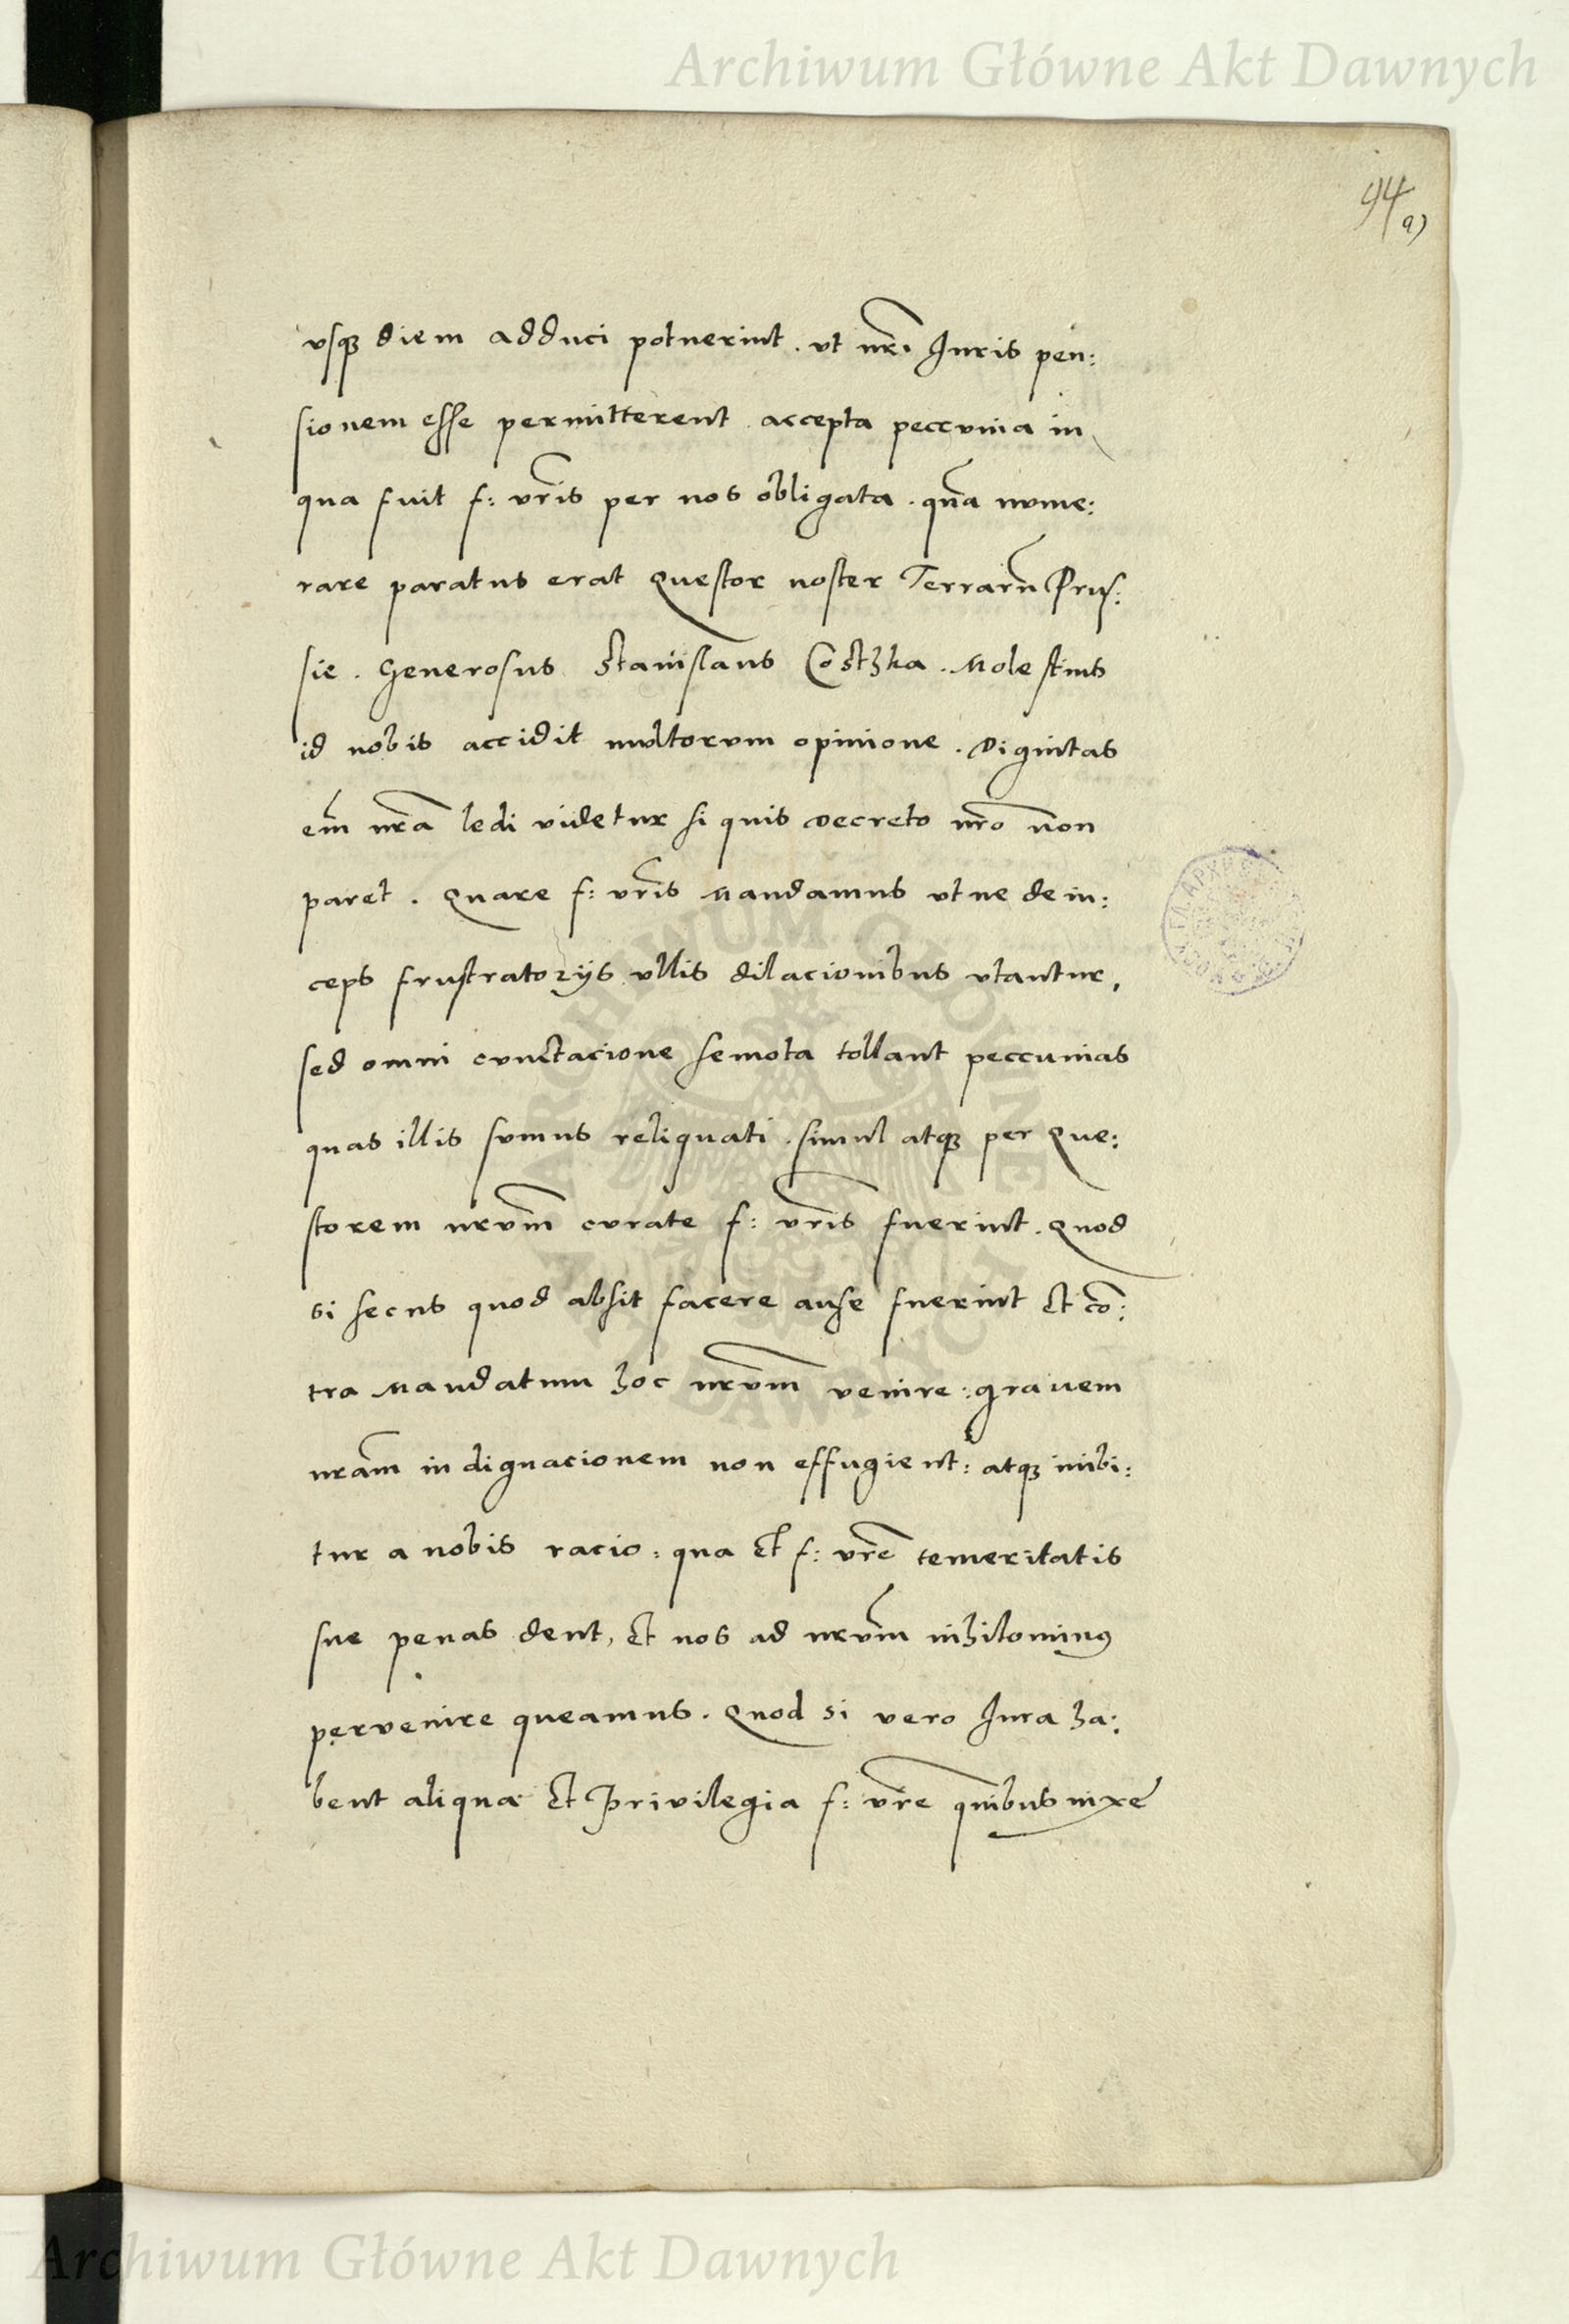 Archiwum Główne Akt Dawnych
94
a)
vsqȝ diem adduci potuerint . vt nr̃i Juris pen:
sionem esse permitterent accepta peccunia in
qua fuit f: vr̃is per nos obligata . quã nume:
rare paratus erat Questor noster Terrarũ Prus:
sie . Generosus Stanislaus Costzka . Molestius
id nobis accidit multorum opinione . Dignitas
em̃ nr̃a ledi videtur si quis decreto nr̃o non
paret . Quare f: vr̃is mandamus vt ne dein:
ceps frustratorijs vllis dilacionibus vtantur,
sed omni cunctacione semota tollant peccunias
quas illis sumus reliquati . simul atqȝ per Que:
storem nr̃vm curate f: vr̃is fuerint . Quod
si secus quod absit facere ause fuerint Et cõ:
tra mandatum hoc nr̃vm venire : grauem
nr̃am indignacionem non effugient : atqȝ inibi:
tur a nobis racio : qua Et f: vr̃e temeritatis
sue penas dent, Et nos ad nr̃vm nihilominꝰ
pervenire queamus . Quod si vero Jura ha:
bent aliqua Et Privilegia f: vr̃e quibus nixe
Archiwum Główne Akt Dawnych